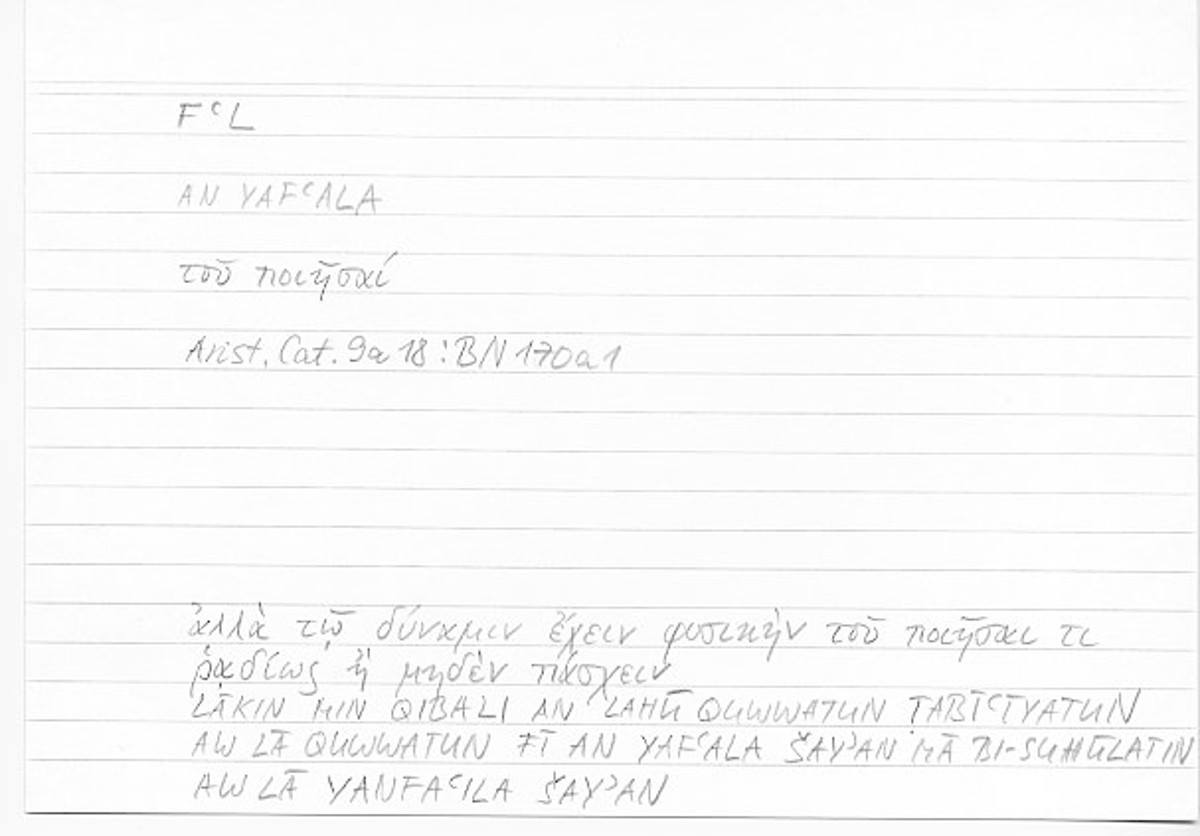 FʿL
AN YAFʿALA
τοῦ ποιῆσαί
Arist. Cat. 9a 18 : BN 170a1
ἀλλὰ τῷ δύναμιν ἔχειν φυσικὴν τοῦ ποιῆσαι τι
ῥᾳδίως ἢ μηδὲν πάσχειν
LĀKIN MIN QIBALI AN LAHŪ QUWWATUN ṬABĪʿĪYATUN
AW LĀ QUWWATUN FĪ AN YAFʿALA ŠAYʾAN MĀ BI-SUHŪLATIN
AW LĀ YANFAʿILA ŠAYʾAN